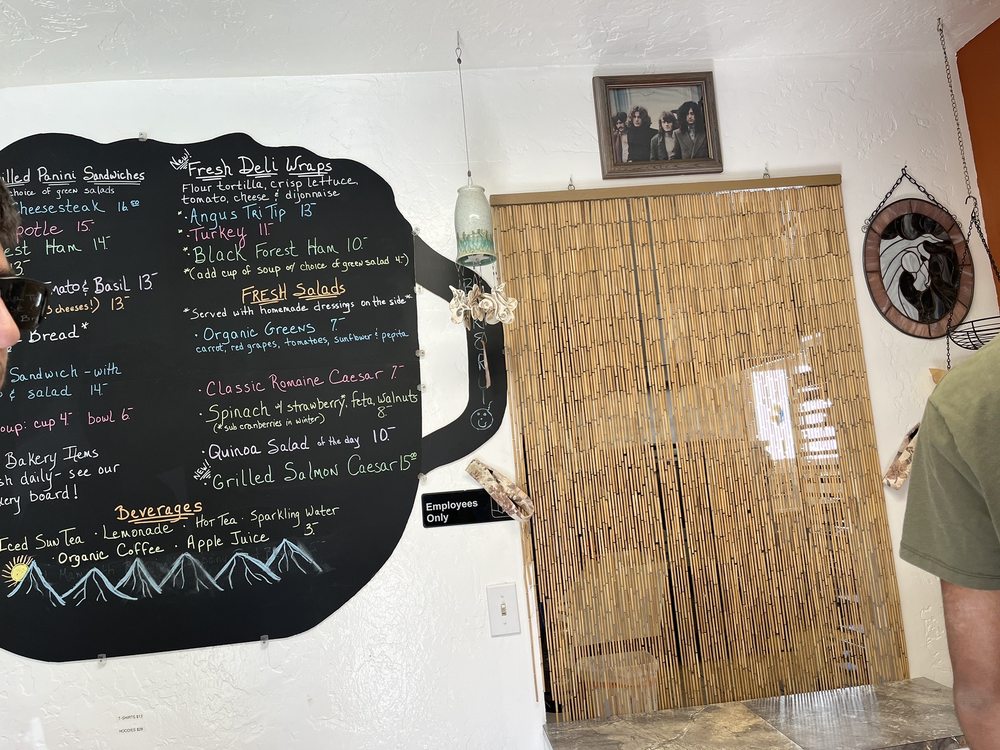 illed Panini Sandwiches
choice of green salads
Cheesesteak 16.00
potle 15-
est Ham 14-
3-
mato & Basil 13-
3 cheeses!) 13-
Bread*
Sandwich - with
& salad 14-
oup: cup 4- bowl 6-
Bakery Items
sh daily - see our
kery board!
New!
Fresh Deli Wraps
Flour tortilla, crisp lettuce,
tomato, cheese & dijonnaise
· Angus Tri Tip 13-
*· Turkey 11-
*· Black Forest Ham 10-
*(add cup of soup or choice of green salad 4-)
FRESH Salads
*Served with homemade dressings on the side*
· Organic Greens 7-
carrot, red grapes, tomatoes, sunflower & pepita
· Classic Romaine Caesar 7-
· Spinach & strawberry*, feta, walnuts
8-
(*sub cranberries in winter)
· Quinoa Salad of the day 10-
New!
· Grilled Salmon Caesar 15.00
Beverages
Iced Sun Tea · Lemonade · Hot Tea · Sparkling Water
· Organic Coffee · Apple Juice 3-
Employees
Only
T-SHIRTS $12